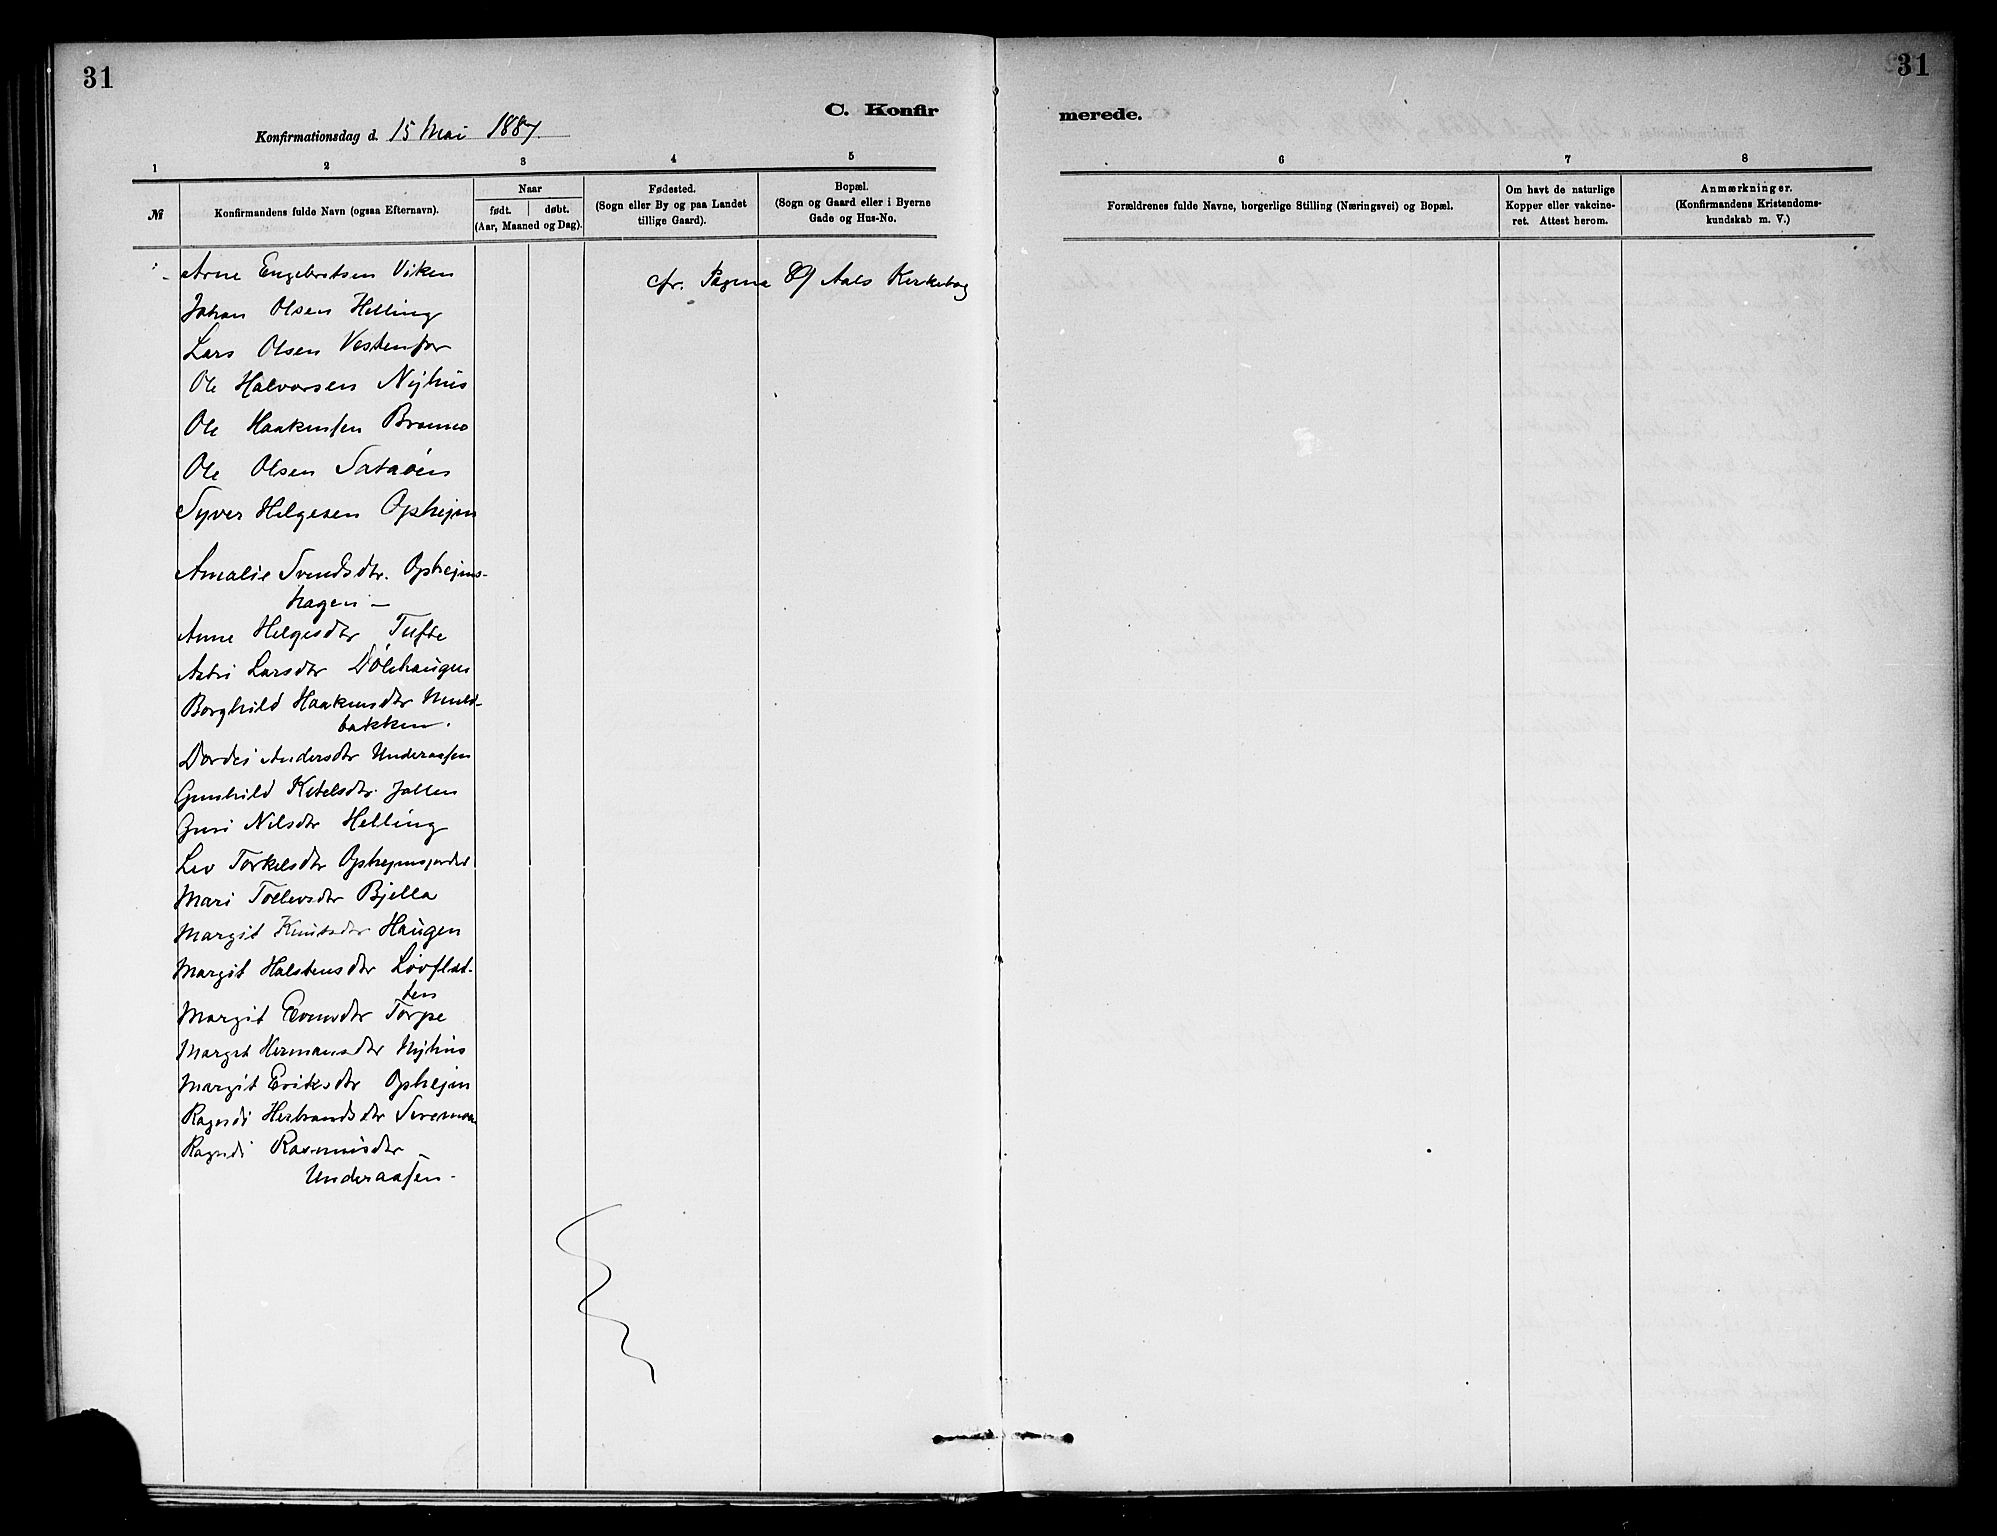 31
31
C. Konfir
merede.
Konfirmationsdag d. 15 Mai 1887.
1
2
3
4
5
6
7
8
№
Konfirmandens fulde Navn (ogsaa Efternavn).
Naar
født. døbt.
(Aar, Maaned og Dag).
Fødested.
(Sogn eller By og paa Landet
tillige Gaard).
Bopæl.
(Sogn og Gaard eller i Byerne
Gade og Hus-No.
Forældrenes fulde Navne, borgerlige Stilling (Næringsvei) og Bopæl.
Om havt de naturlige
Kopper eller vakcine-
ret. Attest herom.
Anmærkninger.
(Konfirmandens Kristendoms-
kundskab m. V.)
Arne Engebretsen Viken
cfr. Pagina 89 Aals Kirkebog
Johan Olsen Helling
Lars Olsen Vestenfor
Ole Halvorsen Nyhus
Ole Haakensen
Ole Olsen
Syver Helgesen Ophejm
Amalie Svendsdtr. Ophejms-
hagen –
Anne Helgesdtr Tufte
Larsdtr Dölehaugen
Borghild Haakensdtr
bakken.
Dordei Andersdtr Underaasen
Gunhild Ketelsdtr
Guri Nilsdtr Helling
Liv Torkelsdtr Ophejmsjordet
Mari Tollevsdtr Bjella
Margit Knutsdtr Haugen
Margit Halstensdtr Lövflat-
ten
Margit Torpe
Margit Hermansdtr Nyhus
Margit Eriksdtr Ophejm
Ragndi Herbrandsdtr
Ragndi Rasmusdtr –
Underaasen –